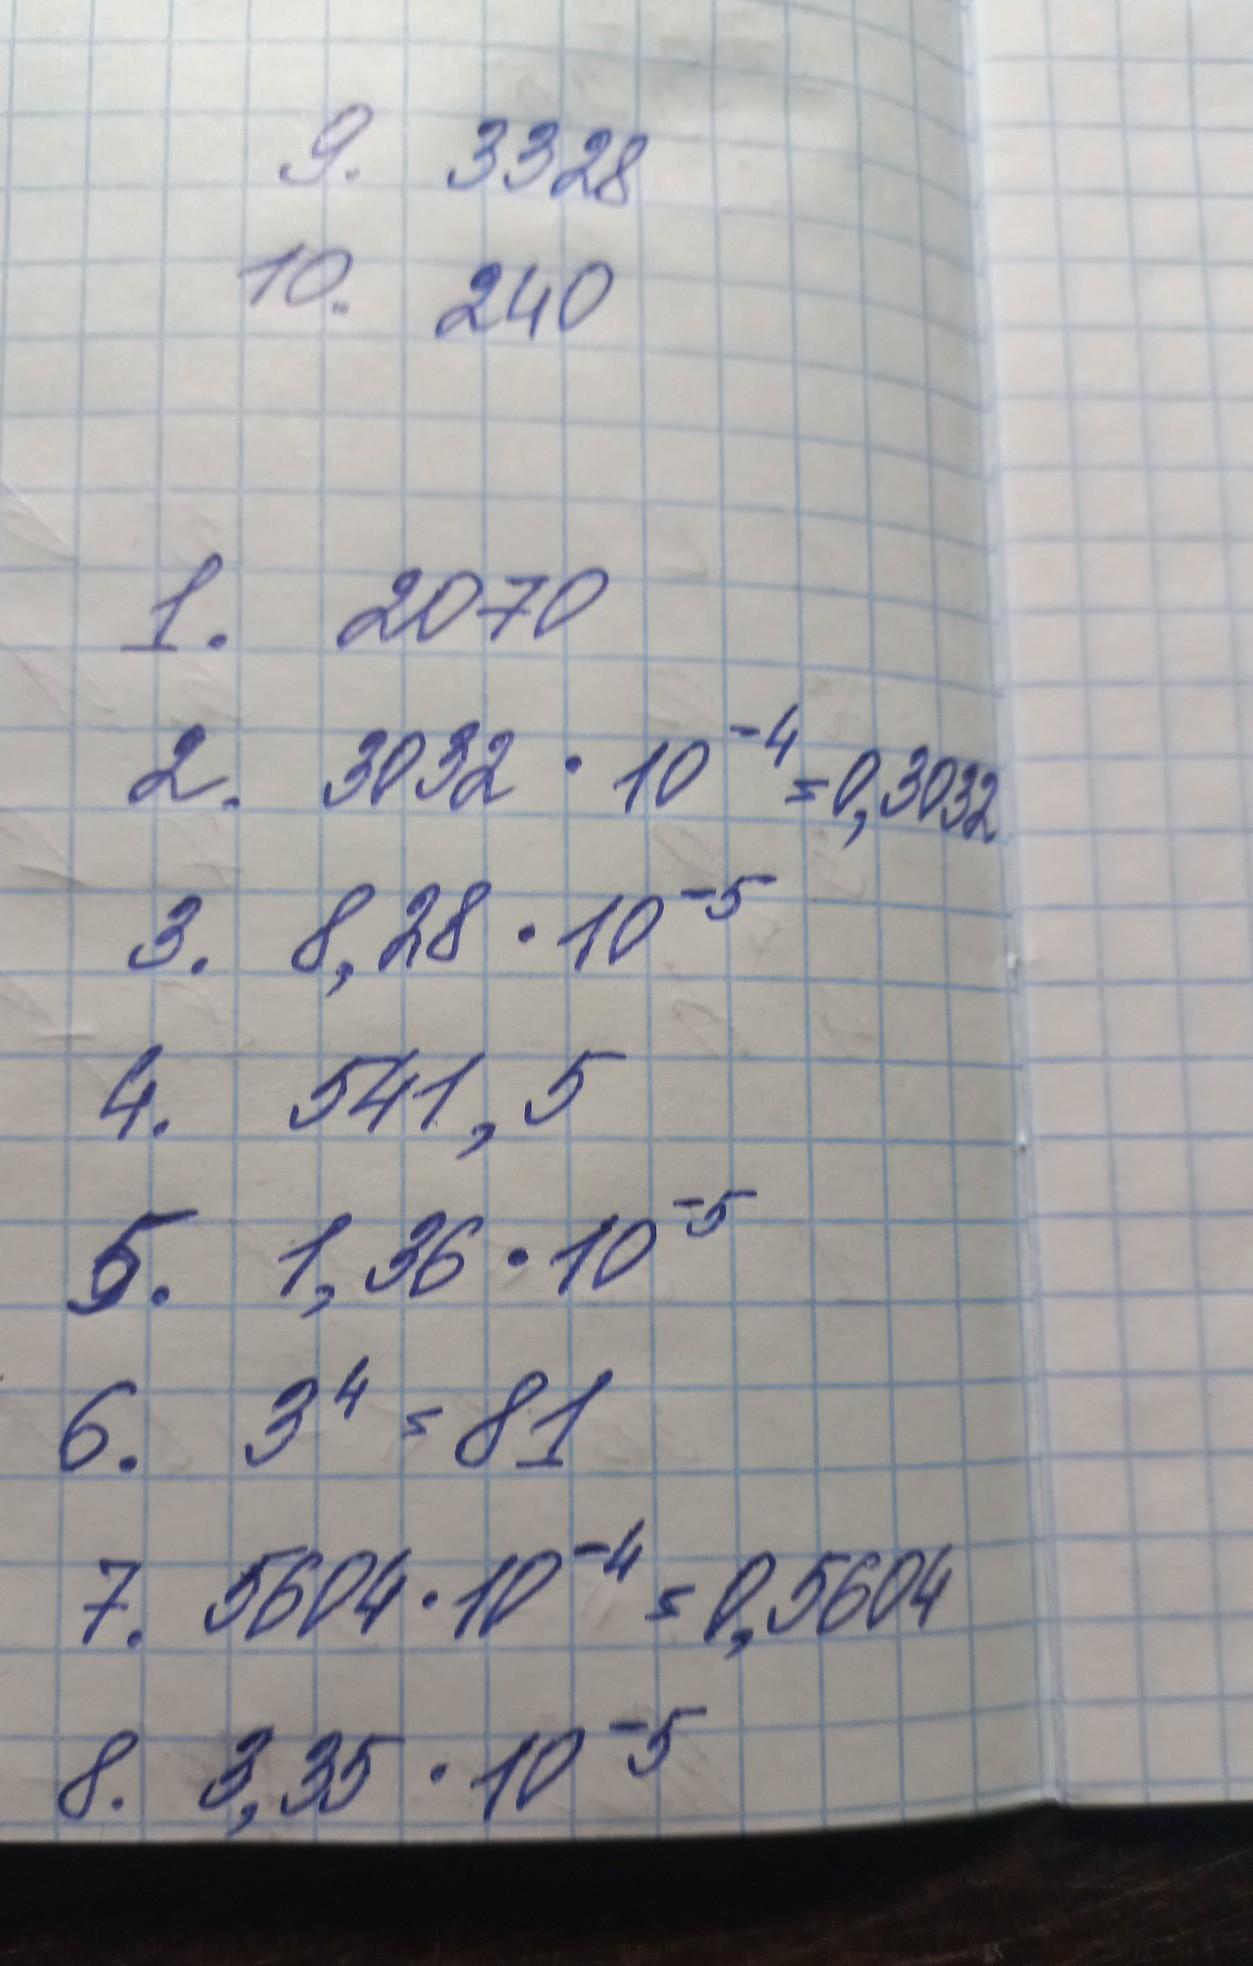 9. 3328
10. 240
1. 2070
2. 3032 · 10⁻⁴ = 0,3032
3. 8,28 · 10⁻⁵
4. 541,5
5. 1,36 · 10⁻⁵
6. 3⁴ = 81
7. 5604 · 10⁻⁴ = 0,5604
8. 3,35 · 10⁻⁵